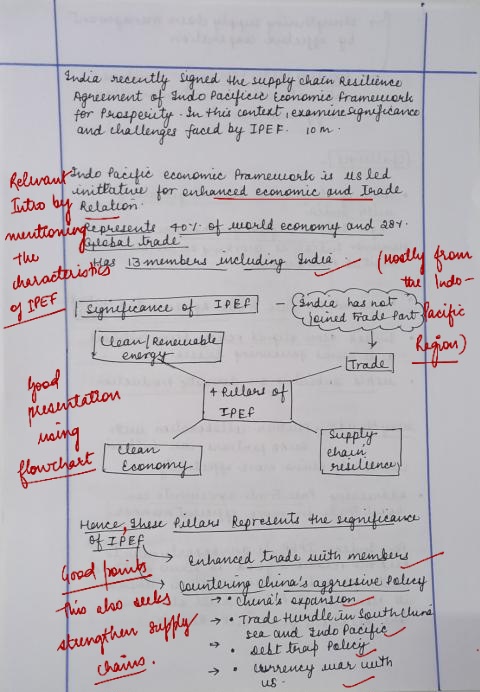 India recently signed the supply chain Resilience
Agreement of Indo Pacificic Economic Framework
for Prosperity. In this context, examine significance
and challenges faced by IPEF. 10 m.
Relevant
Intro by
mentioning
the
characteristics
of IPEF
Indo Pacific economic Framework is US led
initiative for enhanced economic and Trade
Relation.
Represents 40% of world economy and 28%
Global Trade
Has 13 members including India
(Mostly from
the Indo-
Pacific
Region)
Significance of IPEF
India has not
joined Trade Part
Clean/Renewable
energy
Trade
4 Pillars of
IPEF
Clean
Economy
Supply
chain
resilience
Good
presentation
using
flowchart
Hence, these Pillars Represents the significance
of IPEF
Enhanced trade with members
Countering China's aggressive Policy
• China's expansion
• Trade Hurdle in South China
sea and Indo Pacific
• Debt trap Policy
• Currency war with
US.
Good points
This also seeks
strengthen supply
chains.